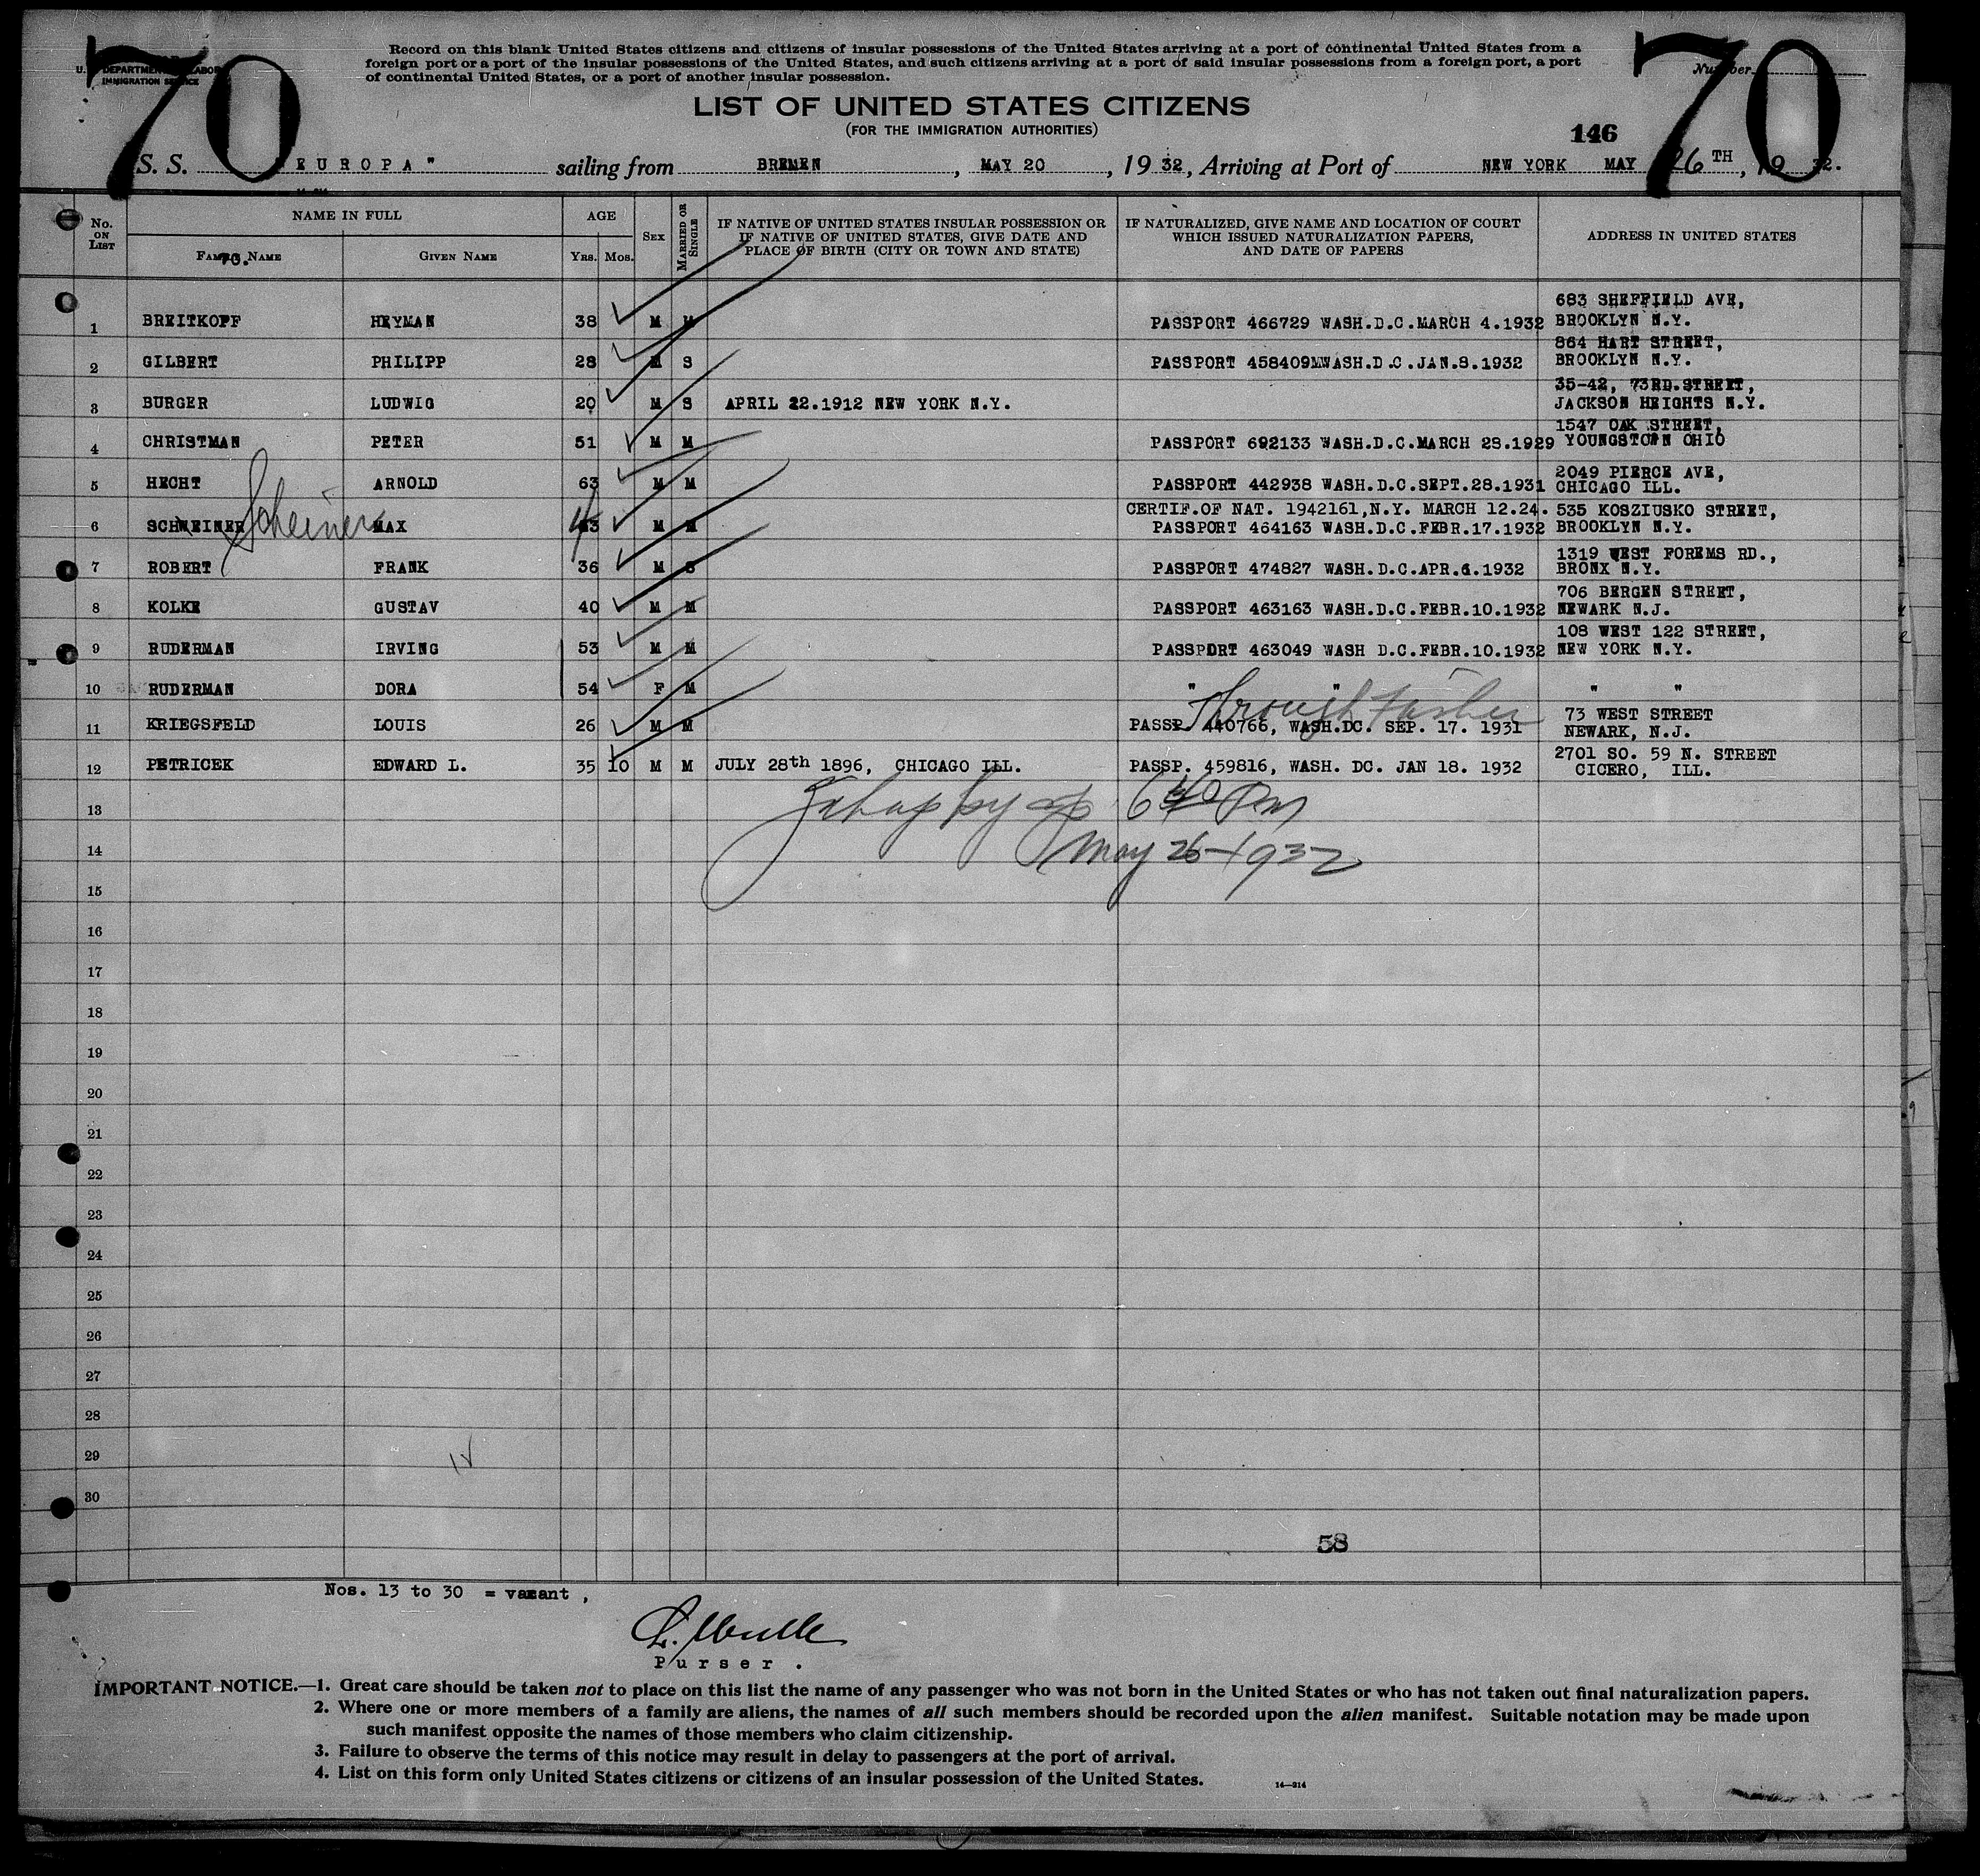 70
70
U. S. DEPARTMENT OF LABOR
IMMIGRATION SERVICE
Record on this blank United States citizens and citizens of insular possessions of the United States arriving at a port of continental United States from a
foreign port or a port of the insular possessions of the United States, and such citizens arriving at a port of said insular possessions from a foreign port, a port
of continental United States, or a port of another insular possession.
Number
LIST OF UNITED STATES CITIZENS
(FOR THE IMMIGRATION AUTHORITIES)
146
S. S. EUROPA" sailing from BREMEN, MAY 20, 1932, Arriving at Port of NEW YORK MAY 26TH, 1932.
No. ON LIST
NAME IN FULL
FAMILY NAME
70.
GIVEN NAME
AGE
YRS. MOS.
SEX
MARRIED OR SINGLE
IF NATIVE OF UNITED STATES INSULAR POSSESSION OR
IF NATIVE OF UNITED STATES, GIVE DATE AND
PLACE OF BIRTH (CITY OR TOWN AND STATE)
IF NATURALIZED, GIVE NAME AND LOCATION OF COURT
WHICH ISSUED NATURALIZATION PAPERS,
AND DATE OF PAPERS
ADDRESS IN UNITED STATES
683 SHEFFIELD AVE,
1 BREITKOPF HEYMAN 38 M M PASSPORT 466729 WASH.D.C.MARCH 4.1932 BROOKLYN N.Y.
864 HART STREET,
2 GILBERT PHILIPP 28 M S PASSPORT 458409 WASH.D.C.JAN.8.1932 BROOKLYN N.Y.
35-42, 73RD.STREET,
3 BURGER LUDWIG 20 M S APRIL 22.1912 NEW YORK N.Y. JACKSON HEIGHTS N.Y.
1547 OAK STREET,
4 CHRISTMAN PETER 51 M M PASSPORT 692133 WASH.D.C.MARCH 28.1929 YOUNGSTOWN OHIO
2049 PIERCE AVE,
5 HECHT ARNOLD 63 M M PASSPORT 442938 WASH.D.C.SEPT.28.1931 CHICAGO ILL.
CERTIF.OF NAT. 1942161,N.Y. MARCH 12.24. 535 KOSZIUSKO STREET,
6 SCHWEINER Scheiner MAX 43 M M PASSPORT 464163 WASH.D.C.FEBR.17.1932 BROOKLYN N.Y.
1319 WEST FOREMS RD.,
7 ROBERT FRANK 36 M S PASSPORT 474827 WASH.D.C.APR.6.1932 BRONX N.Y.
706 BERGEN STREET,
8 KOLKE GUSTAV 40 M M PASSPORT 463163 WASH.D.C.FEBR.10.1932 NEWARK N.J.
108 WEST 122 STREET,
9 RUDERMAN IRVING 53 M M PASSPORT 463049 WASH D.C.FEBR.10.1932 NEW YORK N.Y.
10 RUDERMAN DORA 54 F M " " " "
Through
73 WEST STREET
11 KRIEGSFELD LOUIS 26 M M PASSP. 440766, WASH.DC. SEP. 17. 1931 NEWARK, N.J.
2701 SO. 59 N. STREET
12 PETRICEK EDWARD L. 35 10 M M JULY 28th 1896, CHICAGO ILL. PASSP. 459816, WASH. DC. JAN 18. 1932 CICERO, ILL.
13
6 40 Pm
14
May 26-1932
15
16
17
18
19
20
21
22
23
24
25
26
27
28
29
30
58
Nos. 13 to 30 = vacant,
Purser.
IMPORTANT NOTICE.—1. Great care should be taken not to place on this list the name of any passenger who was not born in the United States or who has not taken out final naturalization papers.
2. Where one or more members of a family are aliens, the names of all such members should be recorded upon the alien manifest. Suitable notation may be made upon
such manifest opposite the names of those members who claim citizenship.
3. Failure to observe the terms of this notice may result in delay to passengers at the port of arrival.
4. List on this form only United States citizens or citizens of an insular possession of the United States.
14—314